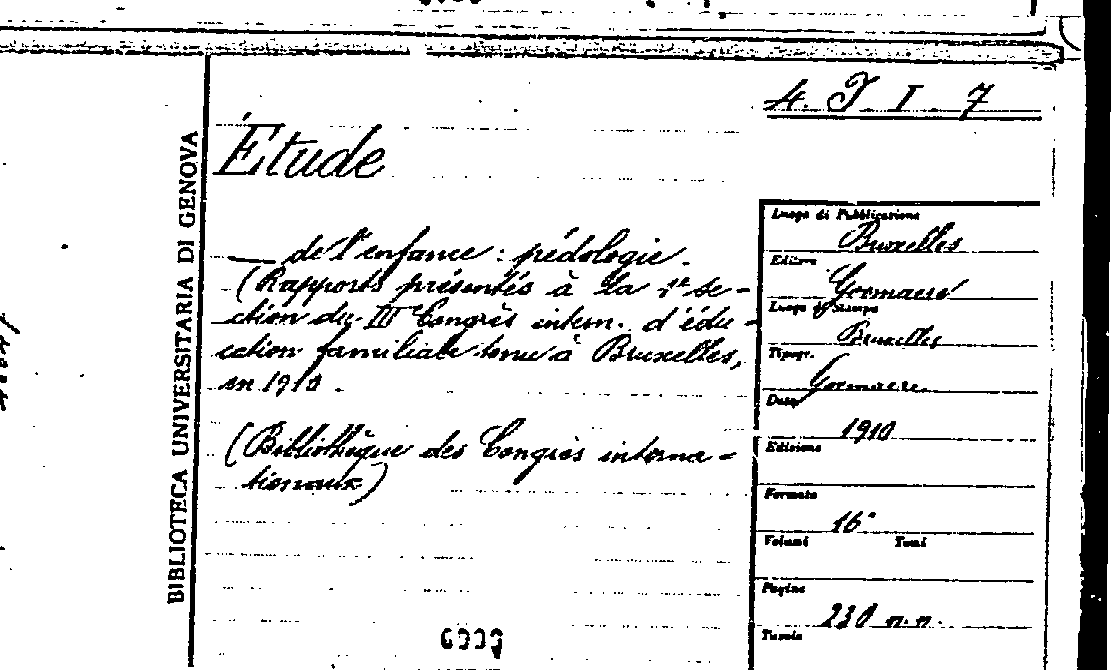 4. I I 7
BIBLIOTECA UNIVERSITARIA DI GENOVA
Étude
— de l'enfance : pédologie.
(Rapports présentés à la 1e se-
ction du III Congrès intern. d'édu-
cation familiale tenu à Bruxelles,
en 1910.
(Bibliothèque des Congrès interna-
tionaux)
Luogo di Pubblicazione
Bruxelles
Editore
Goemaere
Luogo di Stampa
Bruxelles
Tipogr.
Goemaere
Data
1910
Edizione
Formato
16°
Volumi Tomi
Pagine
230 n.n.
Tavole